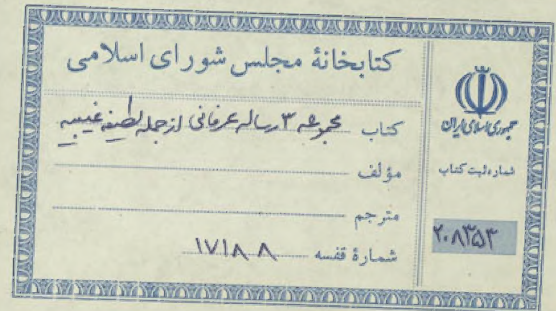 کتابخانهٔ مجلس شورای اسلامی
کتاب مجموعه ۳ رساله عرفانی از جمله لطیفه غیبیه
مؤلف
مترجم
شمارهٔ قفسه ۱۷۱۸۸
جمهوری اسلامی ایران
شماره ثبت کتاب
۲۰۸۳۵۳